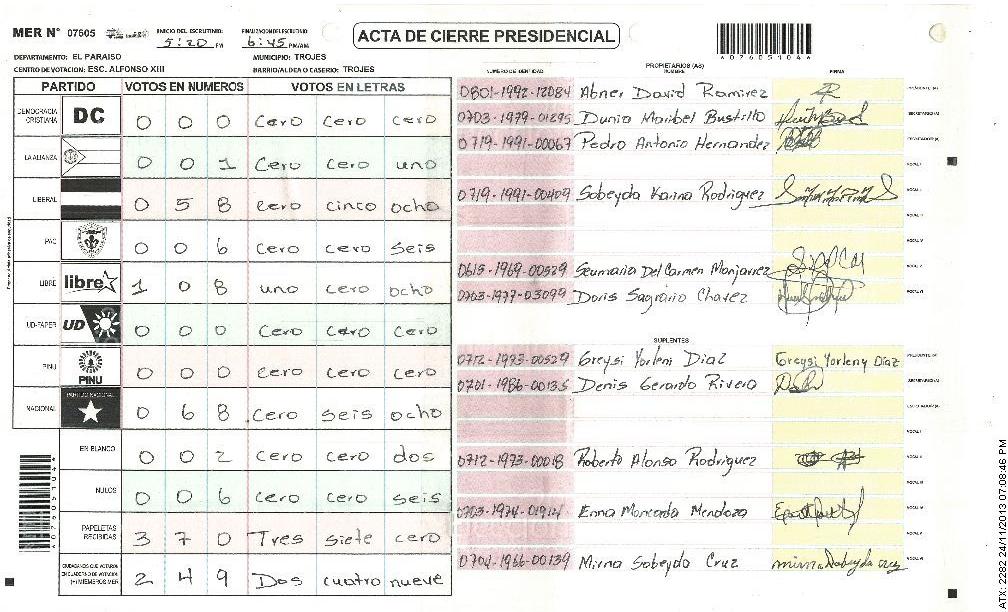 MER N° 07605
INICIO DEL ESCRUTINIO: 5:20 PM
FINALIZACION DEL ESCRUTINIO 6:45 PM/AM
ACTA DE CIERRE PRESIDENCIAL
*07605104*
DEPARTAMENTO: EL PARAISO
MUNICIPIO: TROJES
CENTRO DE VOTACION: ESC. ALFONSO XIII
BARRIO/ALDEA O CASERIO: TROJES
PARTIDO VOTOS EN NUMEROS VOTOS EN LETRAS
DEMOCRACIA CRISTIANA DC 0 0 0 Cero Cero cero
LA ALIANZA 0 0 1 Cero cero uno
LIBERAL 0 5 8 cero cinco ocho
PAC 0 0 6 Cero cero seis
LIBRE libre 1 0 8 uno cero ocho
UD-FAPER UD 0 0 0 Cero Cero Cero
PINU PINU 0 0 0 cero cero cero
NACIONAL PARTIDO NACIONAL 0 6 8 Cero seis ocho
EN BLANCO 0 0 2 Cero cero dos
NULOS 0 0 6 cero cero seis
PAPELETAS RECIBIDAS 3 7 0 Tres siete cero
CIUDADANOS QUE VOTARON EN CUADERNO DE VOTACION (+) MIEMBROS MER 2 4 9 Dos cuatro nueve
*07605104*
PROPIETARIOS (AS)
NUMERO DE IDENTIDAD NOMBRE FIRMA
0801-1992-12084 Abner David Ramirez PRESIDENTE (A)
0703-1979-01295 Dunia Maribel Bustillo SECRETARIO(A)
0719-1991-00067 Pedro Antonio Hernandez ESCRUTADOR(A)
VOCAL I
0719-1991-00409 Sobeyda Karina Rodriguez VOCAL II
VOCAL III
VOCAL IV
0615-1969-00529 Del Carmen Monjarrez VOCAL V
0703-1977-03099 Doris Sagrario Chavez VOCAL VI
SUPLENTES
0712-1993-00529 Greysi Yorleni Diaz Greysi Yorleny Díaz PRESIDENTE (A)
0701-1986-00135 Denis Gerardo Rivera SECRETARIO(A)
ESCRUTADOR(A)
VOCAL I
0712-1973-00018 Roberto Alonso Rodriguez VOCAL II
VOCAL III
0703-1974-01914 Enna Moncada Mendoza VOCAL IV
VOCAL V
0704-1966-00139 Mirna Sobeyda Cruz mirna Sobeyda cruz VOCAL VI
ATX: 2282 24/11/2013 07:08:46 PM